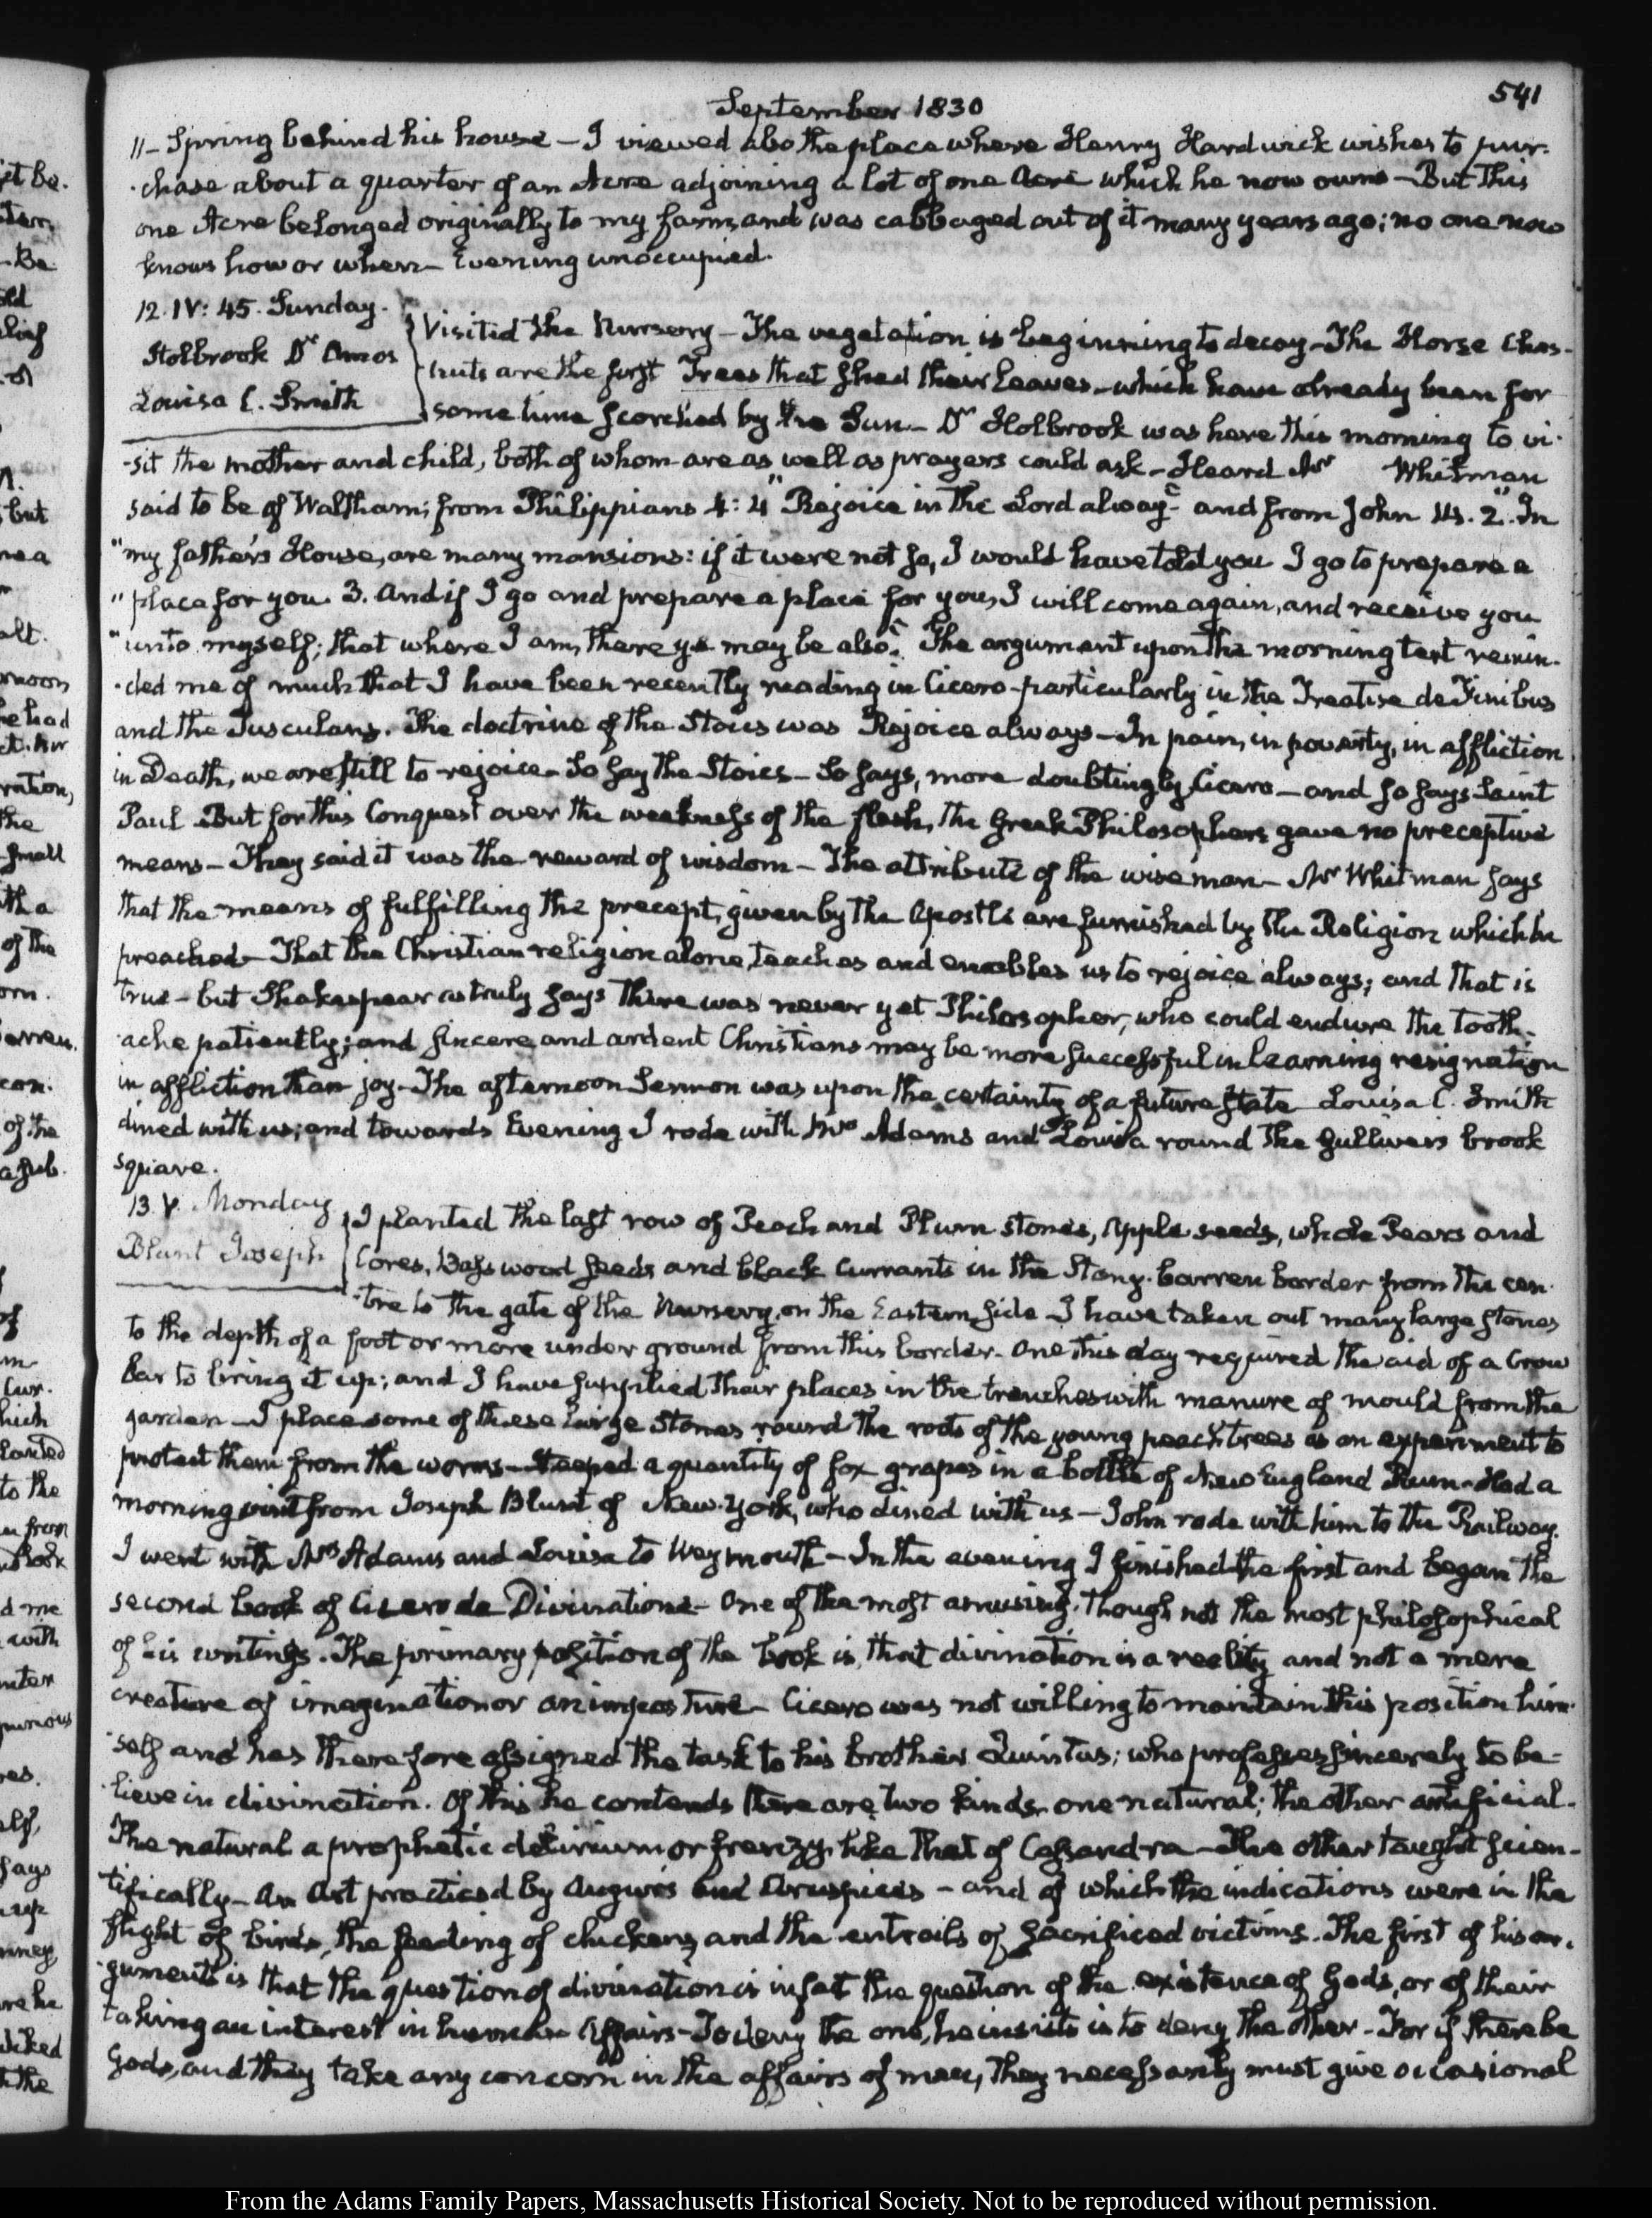 541
September 1830
11- Spring behind his house - I viewed also the place where Henry Hardwick wishes to pur-
-chase about a quarter of an Acre adjoining a lot of one Acre which he now owns - But this
one Acre belonged originally to my farm, and was cabbaged out of it many years ago; no one now
knows how or when - Evening unoccupied.
12. IV: 45. Sunday.
Holbrook Dr. Amos
Louisa C. Smith
Visited the Nursery - The vegetation is beginning to decay - The Horse Ches-
-nuts are the first Trees that shed their leaves - which have already been for
some time scorched by the Sun - Dr Holbrook was here this morning to vi-
-sit the mother and child, both of whom are as well as prayers could ask - Heard Mr Whitman
said to be of Waltham; from Philippians 4:4 "Rejoice in the Lord alway" and from John 14. 2. "In
"my father's House, are many mansions: if it were not so, I would have told you I go to prepare a
"place for you. 3. And if I go and prepare a place for you, I will come again, and receive you
"unto myself; that where I am, there ye may be also". The argument upon the morning text remin-
-ded me of much that I have been recently reading in Cicero - particularly in the Treatise de Finibus
and the Tusculans. The doctrine of the Stoics was Rejoice always - In pain, in poverty, in affliction
in Death, we are still to rejoice - So say the Stoics - So says, more doubtingly Cicero - and so says Saint
Paul - But for this Conquest over the weakness of the flesh, the Greek Philosophers gave no preceptive
means - They said it was the reward of wisdom - The attribute of the wise man - Mr Whitman says
that the means of fulfilling the precept, given by the Apostle are furnished by the Religion which he
preached - That the Christian religion alone, teaches and enables us to rejoice always; and that is
true - but Shakespear as truly says There was never yet Philosopher, who could endure the tooth-
-ache patiently; and sincere and ardent Christians may be more successful in learning resignation
in affliction than joy - The afternoon Sermon was upon the certainty of a future state - Louisa C. Smith
dined with us; and towards Evening I rode with Mrs Adams and Louisa round the Gulliver's brook
square.
13. V. Monday
Blunt Joseph
I planted the last row of Peach and Plum stones, Apple seeds, whole Pears and
Cores, Bass wood seeds and black Currants in the Stony barren border from the cen-
-tre to the gate of the Nursery, on the Eastern side - I have taken out many large stones
to the depth of a foot or more under ground from this border - One this day required the aid of a Crow
bar to bring it up; and I have supplied their places in the trenches with manure of mould from the
garden - I place some of these large Stones round the roots of the young peach trees as an experiment to
protect them from the worms - Steeped a quantity of fox grapes in a bottle of New England Rum - Had a
morning visit from Joseph Blunt of New-York, who dined with us - John rode with him to the Railway.
I went with Mrs Adams and Louisa to Weymouth - In the evening I finished the first and began the
second book of Cicero de Divinatione - One of the most amusing, though not the most philosophical
of his writings. The primary position of the book is, that divination is a reality and not a mere
creature of imagination or an imposture - Cicero was not willing to maintain this position him-
-self and has therefore assigned the task to his brother Quintus; who professes sincerely to be-
-lieve in divination. Of this he contends there are two kinds, one natural; the other artificial -
The natural a prophetic delirium or frenzy, like that of Cassandra - The other taught scien-
-tifically - An Art practiced by Augurs and Aruspices - and of which the indications were in the
flight of birds, the feeding of chickens, and the entrails of sacrificed victims. The first of his ar-
-guments is that the question of divination is in fact the question of the existence of Gods, or of their
taking an interest in human Affairs - To deny the one, he insists is to deny the other - For if there be
Gods, and they take any concern in the affairs of men, they necessarily must give occasional
From the Adams Family Papers, Massachusetts Historical Society. Not to be reproduced without permission.